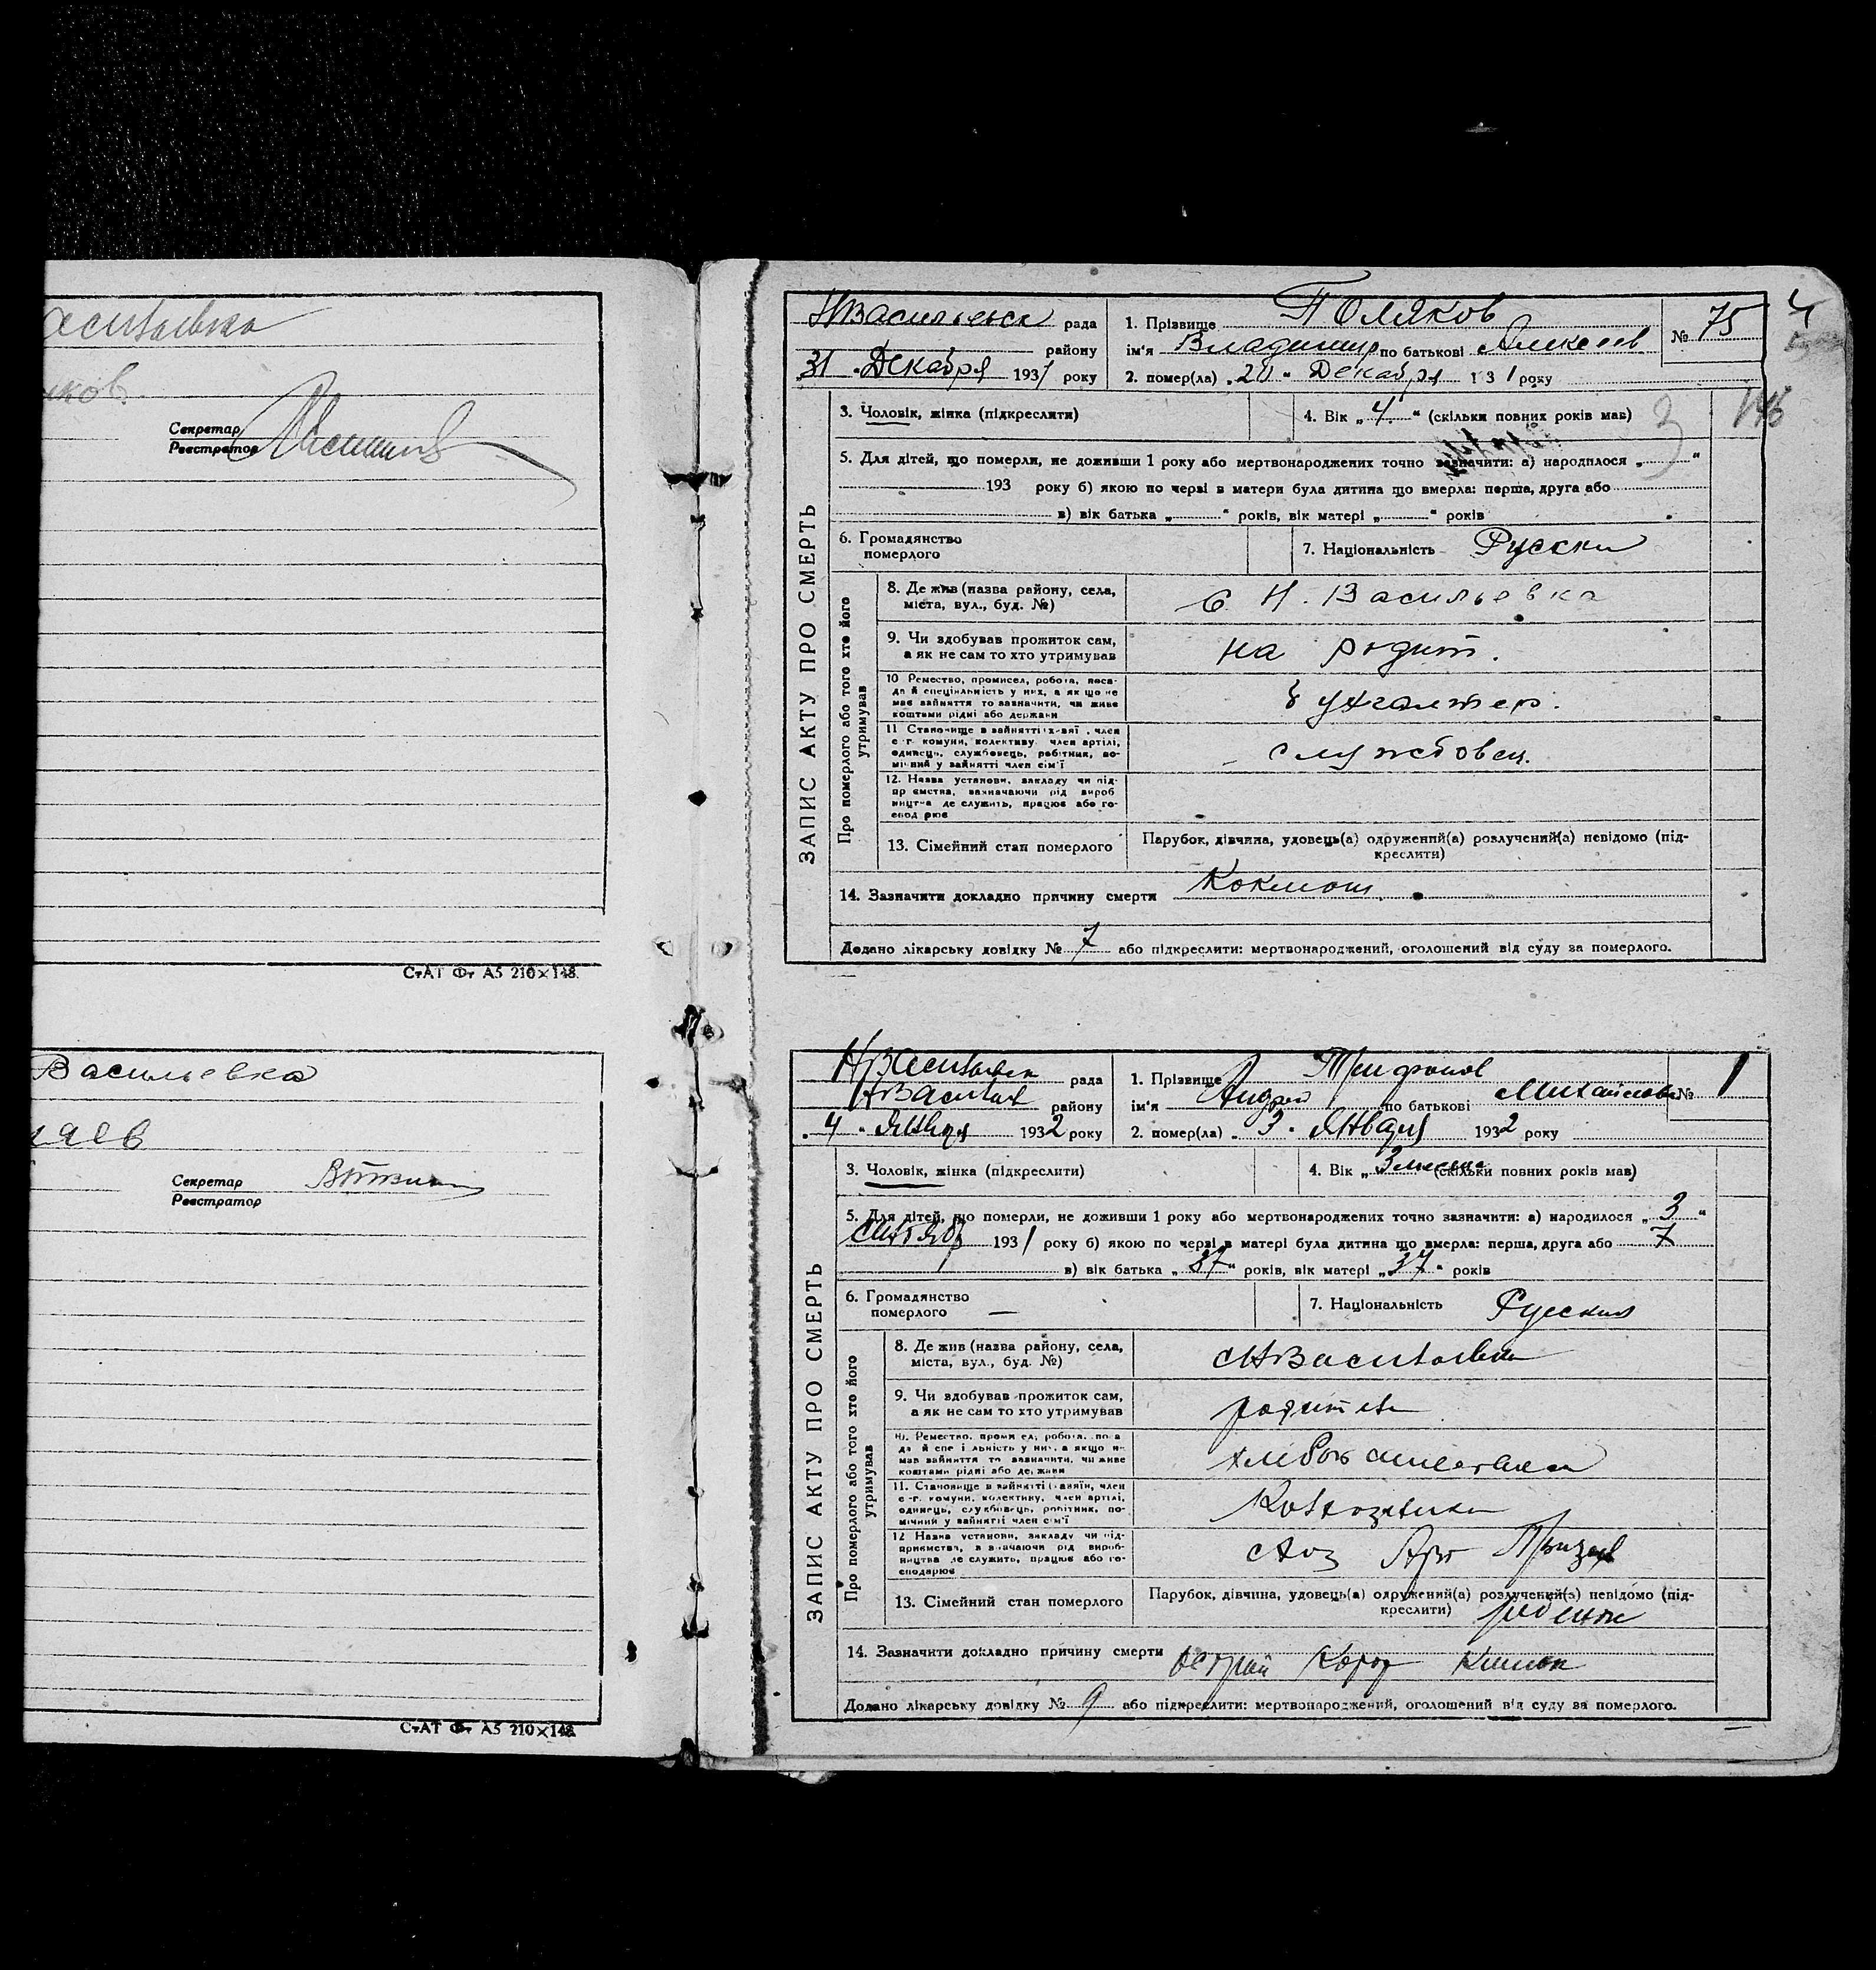 Васильевка
Секретар
Реєстратор
СтАТ Фт А5 210×148.
Васильевка
Секретар
Реєстратор
СтАТ Фт А5 210×148.
НВасильевск рада
району
„31„ Декабря 1931 року
1. Прізвище Поляков
ім'я Владимир по батькові Алексеев
2. помер(ла) „20„ Декабря 1 3 1 року
№ 75
4
146
ЗАПИС АКТУ ПРО СМЕРТЬ
3. Чоловік, жінка (підкреслити)
4. Вік „4“ (скільки повних років мав)
5. Для дітей, що померли, не доживши 1 року або мертвонароджених точно зазначити: а) народилося „ “
193 року б) якою по черзі в матери була дитина що вмерла: перша, друга або
в) вік батька „ “ років, вік матері „ “ років
6. Громадянство
померлого
7. Національність Русски
Про померлого або того хто його
утримував
8. Де жив (назва району, села,
міста, вул., буд. №)
с. Н. Васильевка
9. Чи здобував прожиток сам,
а як не сам то хто утримував
на родит.
10 Ремество, промисел, робота, поса-
да й спеціяльність у них, а як що не
має зайняття то зазначити, чи живе
коштами рідні або держави
бухгалтер.
11 Становище в зайнятті
с-г. комуни, колективу, член артілі,
одинець, службовець, робітник, по-
мічний у зайнятті член сім'ї
служтовец.
12. Назва установи, закладу чи під-
пр ємства, зазначаючи рід вироб
ництва де служить, працює або го-
спод рює
13. Сімейний стан померлого
Парубок, дівчина, удовець(а) одружений(а) розлучений(а) невідомо (під-
креслити)
14. Зазначити докладно причину смерти Коклюш
Додано лікарську довідку № 7 або підкреслити: мертвонароджений, оголошений від суду за померлого.
НВасильевк рада
НВасильев району
„4„ Января 1932 року
1. Прізвище Трифонов
ім'я Андрей по батькові Михайлов
2. помер(ла) „3„ Января 1932 року
№ 1
ЗАПИС АКТУ ПРО СМЕРТЬ
3. Чоловік, жінка (підкреслити)
4. Вік „3 месяца (скільки повних років мав)
5. Для дітей, що померли, не доживши 1 року або мертвонароджених точно зазначити: а) народилося „3“
1931 року б) якою по черзі в матері була дитина що вмерла: перша, друга або 7
в) вік батька „37“ років, вік матері „37“ років
6. Громадянство
померлого —
7. Національність Русский
Про померлого або того хто його
утримував
8. Де жив (назва району, села,
міста, вул., буд. №)
с НВасильевка
9. Чи здобував прожиток сам,
а як не сам то хто утримував
родители
10. Ремество, робота
да й спе і льність у них, а якщо не
має зайняття то зазначити, чи живе
коштами рідні або держави
11. Становище в зайнятті
с-г. комуни, колективу, член артілі,
одинець, службовець, робітник, по-
мічний у зайнятті член сім'ї
Колхозники
12 Назва установи, закладу чи під-
приємства, зазначаючи рід вироб-
ництва де служить, працює або го-
сподарює
13. Сімейний стан померлого
Парубок, дівчина, удовець(а) одружений(а) розлучений(а) невідомо (під-
креслити) ребенок
14. Зазначити докладно причину смерти острий
Додано лікарську довідку № 9 або підкреслити: мертвонароджений, оголошений від суду за померлого.